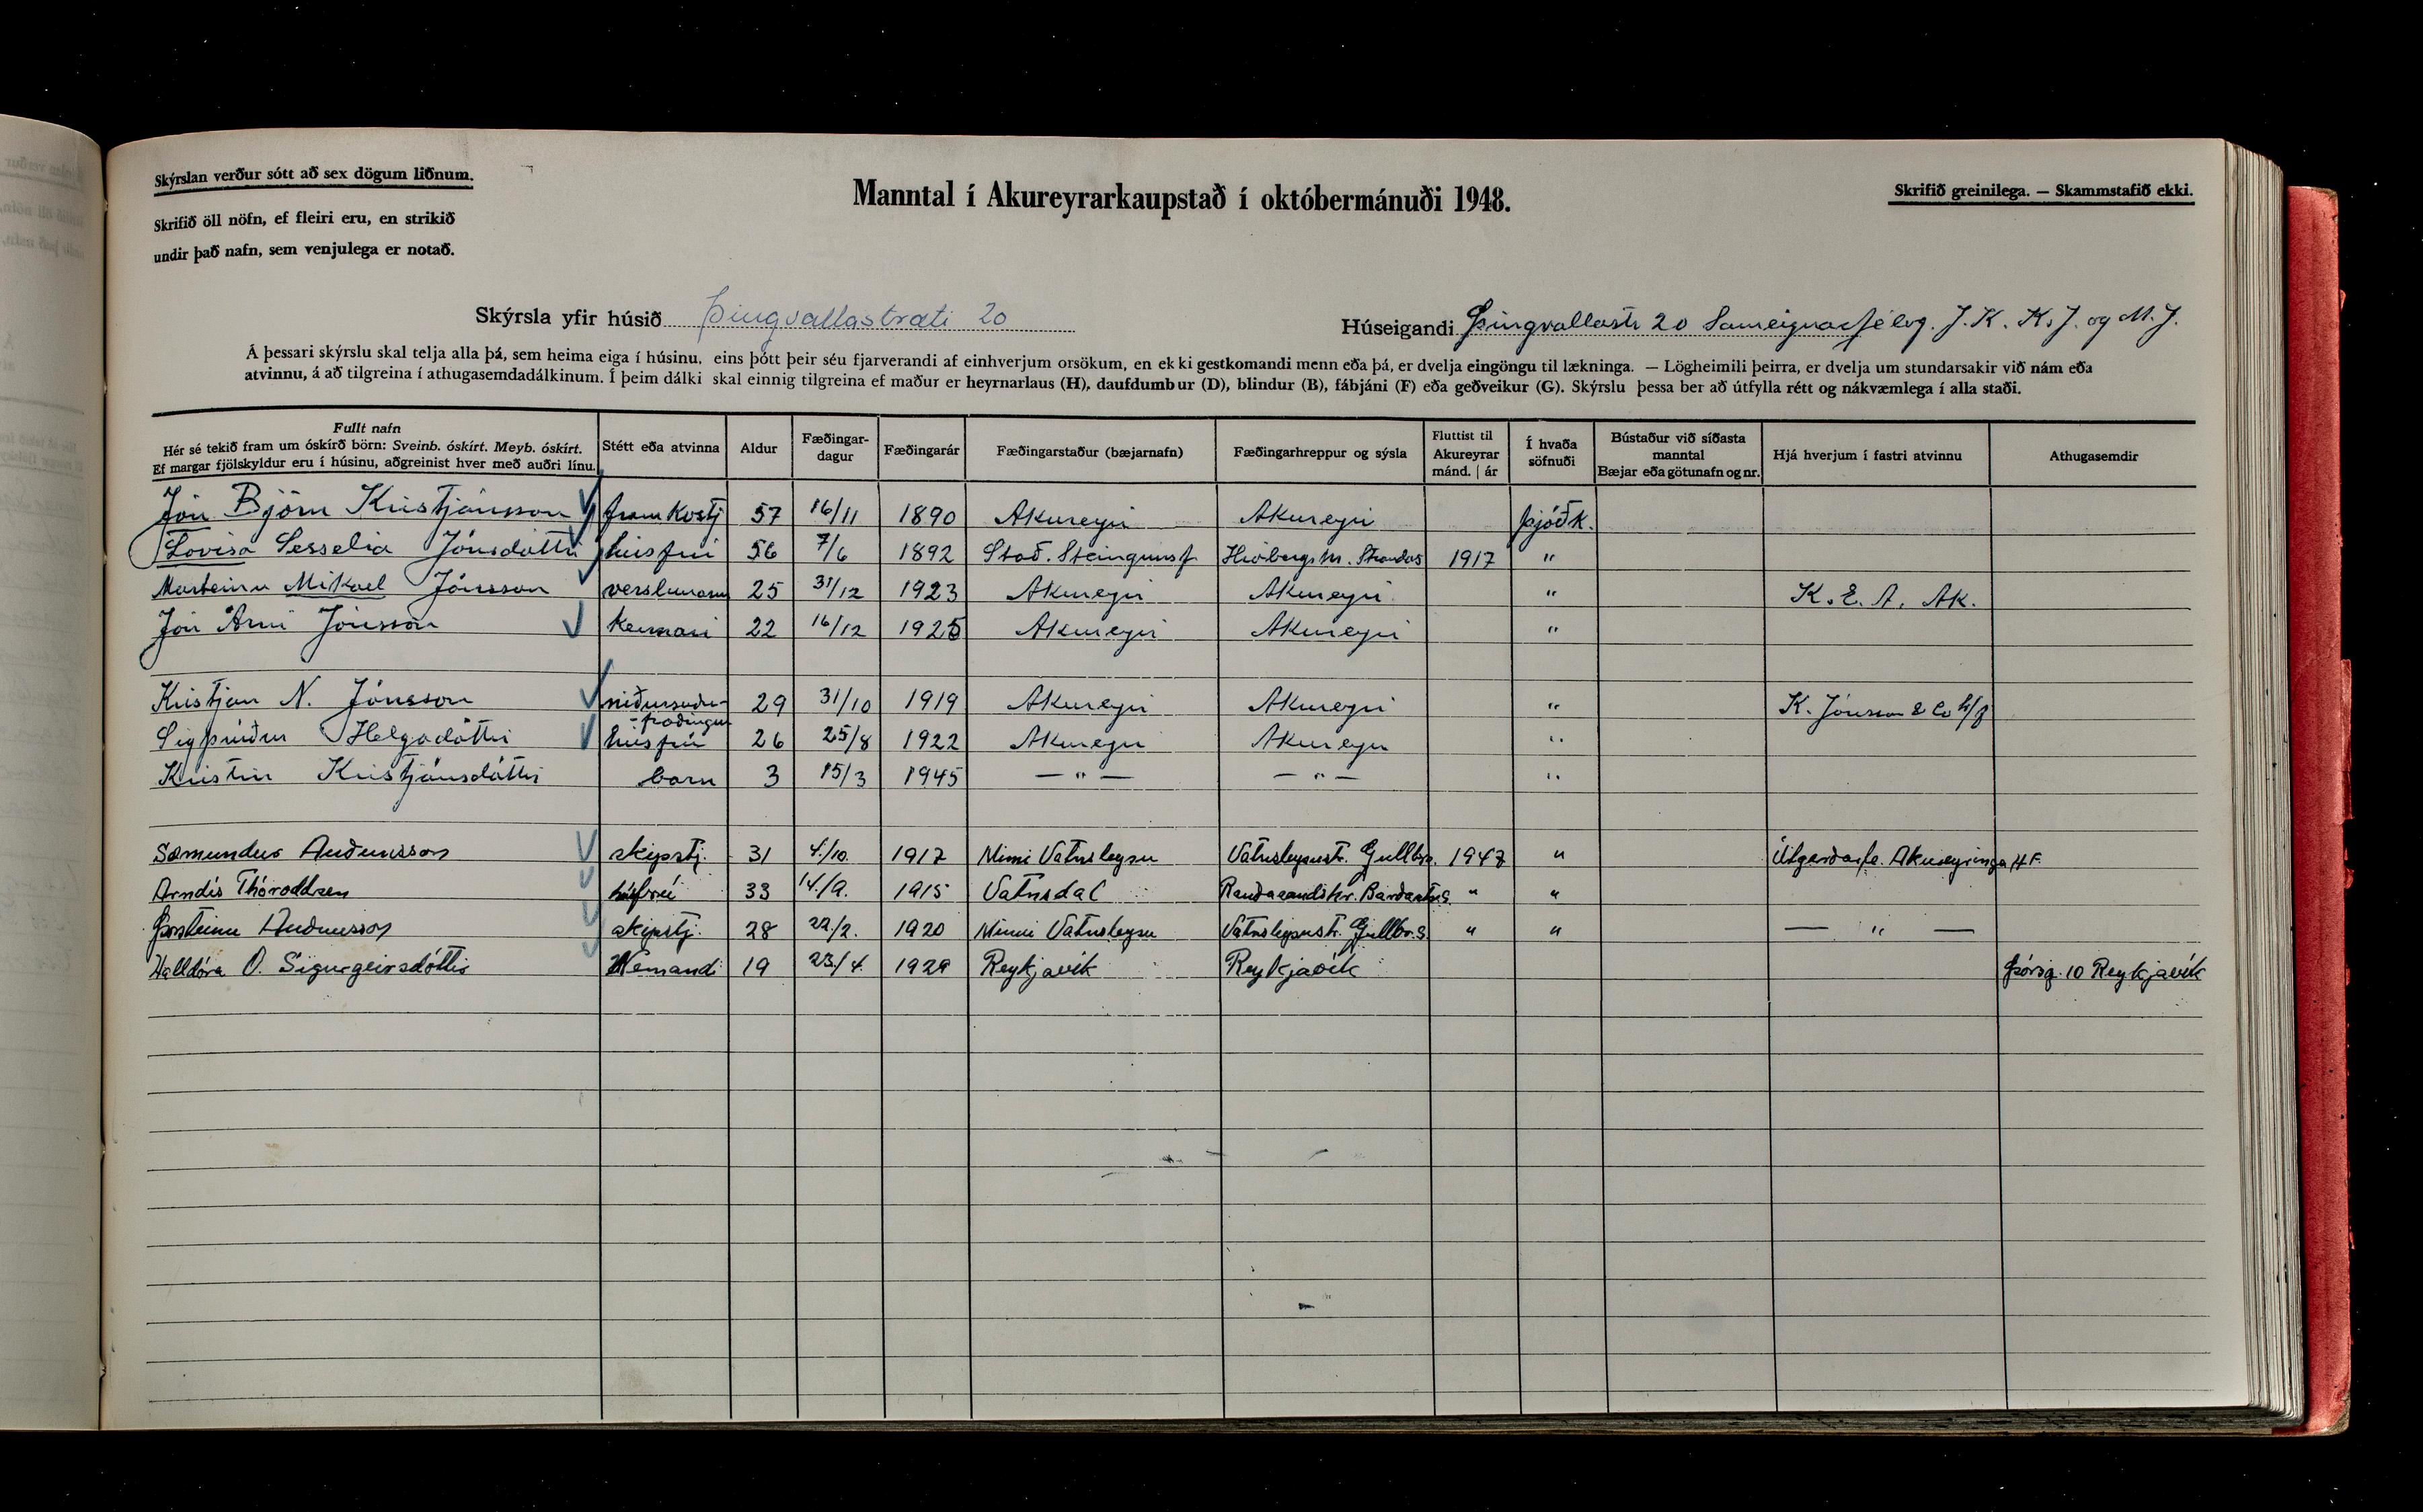 Skýrslan verður sótt að sex dögum liðnum.
Skrifið öll nöfn, ef fleiri eru, en strikið
undir það nafn, sem venjulega er notað.
Manntal í Akureyrarkaupstað í októbermánuði 1948.
Skrifið greinilega. — Skammstafið ekki.
Skýrsla yfir húsið Þingvallastræti 20
Húseigandi Þingvallastr 20 Sameignarfélag. J. K. K. J. og M. J.
Á þessari skýrslu skal telja alla þá, sem heima eiga í húsinu, eins þótt þeir séu fjarverandi af einhverjum orsökum, en ekki gestkomandi menn eða þá, er dvelja eingöngu til lækninga. — Lögheimili þeirra, er dvelja um stundarsakir við nám eða
atvinnu, á að tilgreina í athugasemdadálkinum. Í þeim dálki skal einnig tilgreina ef maður er heyrnarlaus (H), daufdumbur (D), blindur (B), fábjáni (F) eða geðveikur (G). Skýrslu þessa ber að útfylla rétt og nákvæmlega í alla staði.
Fullt nafn
Hér sé tekið fram um óskírð börn: Sveinb. óskírt. Meyb. óskírt.
Ef margar fjölskyldur eru í húsinu, aðgreinist hver með auðri línu.
Stétt eða atvinna
Aldur
Fæðingar-
dagur
Fæðingarár
Fæðingarstaður (bæjarnafn)
Fæðingarhreppur og sýsla
Fluttist til
Akureyrar
mánd. | ár
Í hvaða
söfnuði
Bústaður við síðasta
manntal
Bæjar eða götunafn og nr.
Hjá hverjum í fastri atvinnu
Athugasemdir
Jón Björn Kristjánsson framkvstj 57 16/11 1890 Akureyri Akureyri Þjóðk.
Lovísa Sesselia Jónsdóttir húsfrú 56 7/6 1892 Stað. Steingrímsf. Hrófbergshr. Strandas 1917 "
Marteinn Mikael Jónsson verslunarm 25 31/12 1923 Akureyri Akureyri " K. E. A. Ak.
Jón Árni Jónsson kennari 22 16/12 1925 Akureyri Akureyri "
Kristján N. Jónsson niðursuðu- 29 31/10 1919 Akureyri Akureyri " K. Jónsson & Co h/f
-fræðingur
Sigþrúður Helgadóttir húsfrú 26 25/8 1922 Akureyri Akureyri "
Kristín Kristjánsdóttir barn 3 15/3 1945 — " — — " — "
Sæmundur Auðunsson skipstj. 31 4./10. 1917 Minni Vatnsleysu Vatnsleysustr. Gullbr. 1947 " Útgerðarfé. Akureyringa H.F.
Arndís Thóroddsen húsfrú 33 14./9. 1915 Vatnsdal Rauðasandshr. Barðastr.s. " "
Þorsteinn Auðunsson skipstj. 28 22./2. 1920 Minni Vatnsleysu Vatnsleysustr. Gullbr.s. " " — " —
Halldóra Ó. Sigurgeirsdóttir Nemandi 19 23./4. 1929 Reykjavík Reykjavík Þórsg. 10 Reykjavík